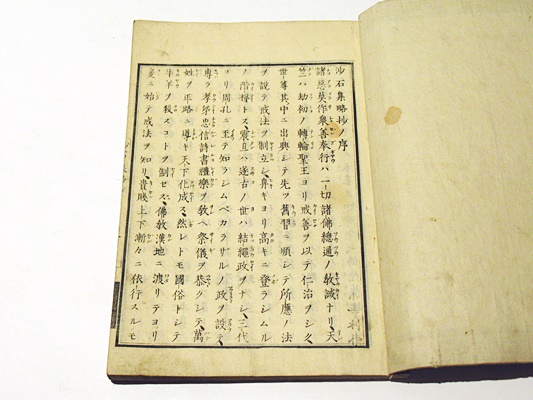 沙石集略抄ノ序
諸惡莫作衆善奉行ハ一切諸佛總通ノ教誡ナリ、天
竺ハ劫初ノ轉輪聖王ヨリ戒善ヲ以テ仁治ヲシク、
世尊其中ニ出興シテ先ツ舊習ニ順シテ所應ノ法
ヲ説テ戒法ヲ制立シ、卑キヨリ高キニ登ラシムル
ノ階梯トス、震旦ハ遂古ノ世ハ結繩政ヲナシ、三代
ヨリ周孔ニ至テ知ラシムベカラサルノ政ヲ設テ、
專ラ孝弟忠信詩書禮樂ヲ教ヘ祭儀ヲ恭クシテ、萬
姓ヲ平路ニ導キ天下化成ス、然レトモ國俗トシテ
牛羊ヲ殺スコトヲ制セス、佛教漢地ニ渡リテヨリ
爰ニ始テ戒法ヲ知リ、貴賤上下漸々ニ依行スルモ